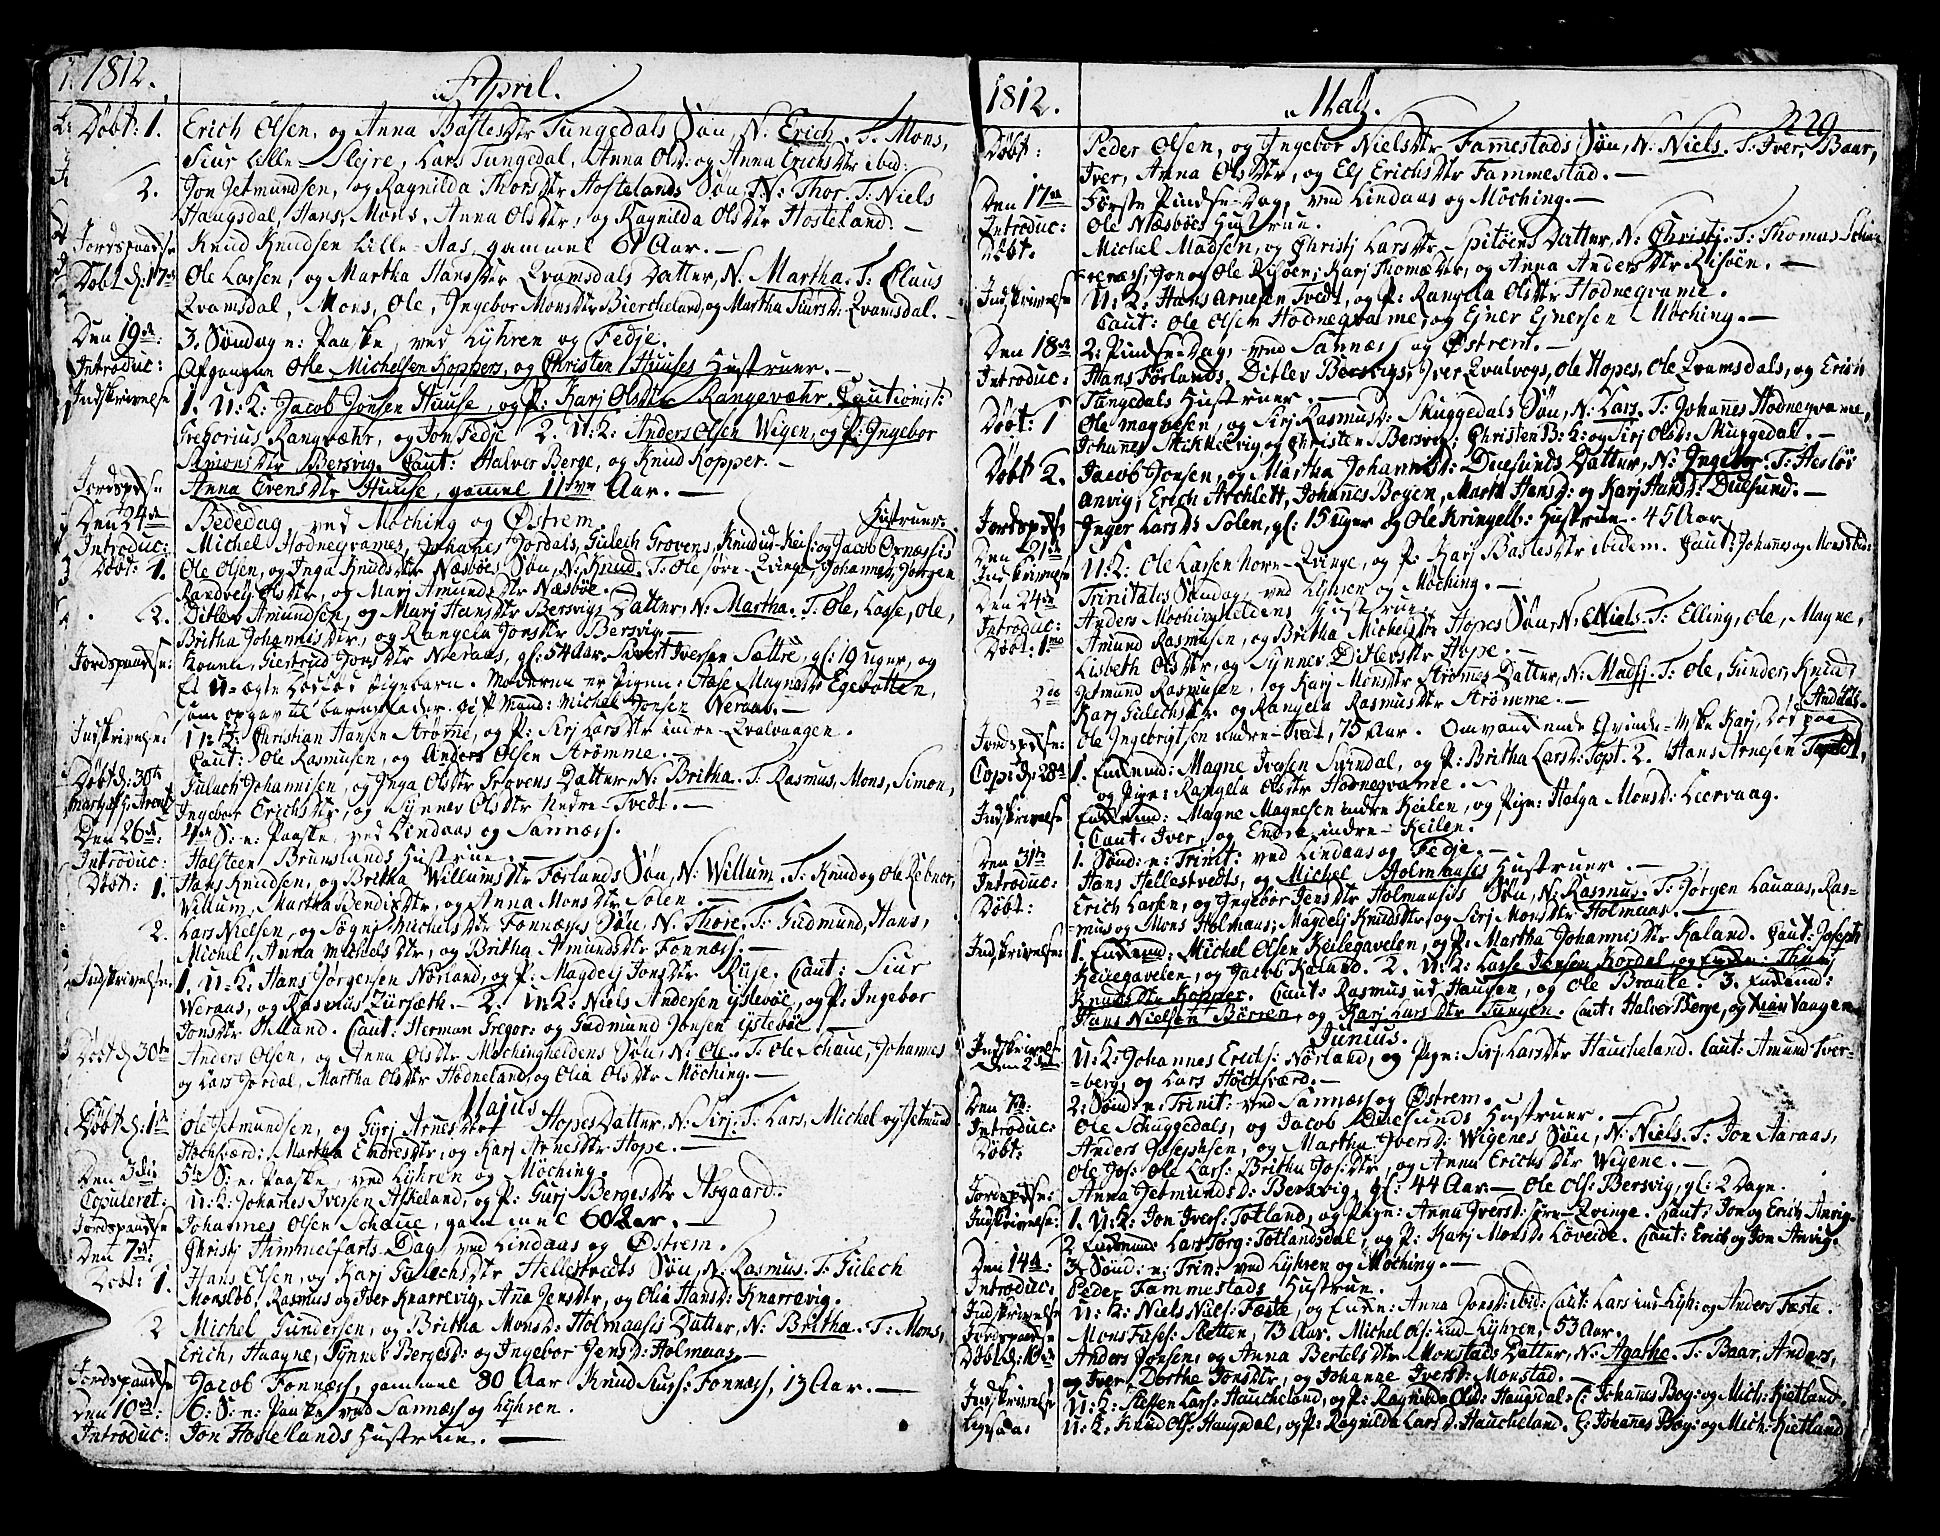 1812. April.
Døbt: 1. Erich Olsen, og Anna BastesDtr Tungedals Søn, N: Erich. T: Mons,
Siur Lille-Slejre, Lars Tungedal, Anna Olsd: og Anna ErichsDtr ibid:
2. Jon Jetmundsen, og Ragnilda ThorsDtr Hostelands Søn, N: Thor. T: Niels
Haugsdal, Hans, Mons, Anna OlsDtr, og Ragnilda OlsDtr Hosteland. -
Jordspaadse Knud Knudsen Lille-Aas, gammel 61 Aar. -
Døbt d: 17de Ole Lassen, og Martha HansDtr Qvamsdals Datter, N: Martha. T: Claus
Qvamsdal, Mons, Ole, Ingebor MonsDtr Biercheland, og Martha Siursd: Qvamsdal. -
Den 19de: 3. Søndag e: Paaske, ved Lyhren og Fedje.
Introduc: Afgangne Ole Michelsen Koppers, og Christen Huuses Hustruer. -
Indskrivelse 1. U:K: Jacob Jonsen Huuse, og P: Karj OlsDtr Rangevæhr. Cautionist:
Gregorius Rangvæhr, og Jon Fedje 2. U:K: Anders Olsen Wigen, og P: Ingebor
SimonsDtr Bersvig. Caut: Halver Berge, og Knud Kopper. -
Jordspdse Anna EvensDtr Huuse, gammel 11 Aar. -
Den 24de Bededag, ved Møching og Østrem. Hustruer.
Introduc: Michel Hodnegvames, Johanes Jordals, Gulech Grovens, Knud og Jacob Ornæssis
Døbt: 1. Ole Olsen, og Inga KnudsDtr Næsbøes Søn, N: Knud. T: Ole søre Qvinge, Johannes, Jørgen
Randveig OlsDtr, og Marj AmundsDtr Næsbøe. -
2. Ditlev Amundsen, og Marj HansDtr Bersvigs Datter, N: Martha. T: Ole, Lasse, Ole,
Britha JohannisDtr, og Rangela JonsDtr Bersvig. -
Jordspaadse: Konnen, Giertrud JonsDtr Nieraas, gl: 54 Aar. Sivert Iversen Sættre, gl: 19 uger, og
Et U-ægte Pigebarn. Moderen er Pigen: Aase MagnesDtr Egebotten,
som opgav til barnefader Michel Jonsen Neraas. -
Indskrivelse: 1 U:K: Christian Hansen Strømme, og P: Sirj LarsDtr indre Qvalvaagen.
Caut: Ole Rasmusen, og Anders Olsen Strømme. -
Døbt d: 30te Gulach Johannisen, og Inga OlsDtr Grovens Datter, N: Britha. T: Rasmus, Mons, Simon,
Ingebor ErichsDtr, og Synnev OlsDtr Nedre-Tvedt. -
Den 26de: 4de S: e: Paaske, ved Lindaas og Sannæss.
Introduc: Halsteen Brunslands Hustrue. -
Døbt: 1. Hans Knudsen, og Britha WillumsDtr Førlands Søn, N: Willum. T: Knud og Ole Rebnor,
Willum, Martha BendixDtr, og Anna MonsDtr Solen. -
2. Lars Nielsen, og Søgni MichelsDtr Fonnæsses Søn, N: Thore. T: Gudmund, Hans,
Michel, Anna MichelsDtr, og Britha AmundsDtr Fonnæss. -
Indskrivelse: 1. U:K: Hans Jørgensen Nørland, og P: Magdelj JonsDtr Risje. Caut: Siur
Weraas, og Rasmus Zursæth. - 2. U:K: Niels Andersen Ystebøe, og P: Ingebor
JonsDtr Hilland. Caut: Herman Gregor: og Gudmund Jonsen Ystebøe
Døbt d: 30te Anders Olsen, og Anna OlsDtr Møchingheldens Søn, N: Ole. T: Ole Schaue, Johannes
og Lars Jordal, Martha OlsDtr Hodneland, og Olia OlsDtr Møching. -
Majus
Døbt d: 1te Ole Jetmundsen, og Gurj ArnesDtr Hopes Datter, N: Sirj. T: Lars, Michel og Jetmund
Hochsværd: Martha EndresDtr, og Karj ArnesDtr Hope. -
Den 3die 5te S: e: Paaske, ved Lyhren og Møching.
Copuleret: U:K: Johanes Iversen Askeland, og P: Gurj BergesDtr Asgaard.
Jordspaadse Johannes Olsen Schaue, gammel 60 Aar. -
Den 7de: Christj Himmelfarts-Dag, ved Lindaas og Østrem.
Døbt: 1. Hans Olsen, og Karj GulechsDtr Hellestvedts Søn, N: Rasmus. T: Gulech
Monsløb, Rasmus og Iver Knarrevig, Ana JensDtr, og Olia Hansd: Knarrevig.
2 Michel Gundersen, og Britha Monsd: Holmaasis Datter, N: Britha. T: Mons,
Erich, Haagne, Synnev Bergesd: og Ingebor Jensd: Holmaas. -
Jordspaadse Jacob Fonnæss, gammel 80 Aar Knud Siurs: Fonnæss, 13 Aar. -
Den 10de: 6. S: e: Paaske ved Sannæss og Lyhren.
Introduc: Jon Hostelands Hustrue. -
1812. Maj. 229
Døbt: Peder Olsen, og Ingebor NielsDtr Fammestads Søn, N: Niels. T: Iver, Baar,
Iver, Anna OlsDtr, og Els ErichsDtr Fammestad. -
Den 17de Første Pindse-Dag, ved Lindaas og Møching. -
Introduc: Ole Næsbøes Hustrue.
Døbt. Michel Madsen, og Christj LarsDtr Spitøens Datter, N: Christj. T: Thomas
Jon og Ole Risøen, Karj ThomæDtr, og Anna AndersDtr Risøen. -
Indskrivelse U:K: Hans Arnesen Tvedt, og P: Rangela OlsDtr Hodnegvame.
Caut: Ole Olsen Hodnegvame, og Ejner Ejnersen Møching. -
Den 18de 2: Pindse-Dag, ved Sannæss og Østrem. -
Introduc: Hans Førlands, Ditlev Bersvigs, Iver Qvalvogs, Ole Hopes, Ole Qvamsdals, og Erich
Tungedals Hustruer. -
Døbt: 1 Ole Magnesen, og Sirj Rasmusd: Skuggedals Søn, N: Lars. T: Johannes Hodnegvame,
Johannes Mikkelvig, og Christen Bersvig: Christen B:K: og Sirj Olsd: Skuggedal. -
Døbt 2. Jacob Jonsen, og Martha Johannisd: Duesunds Datter, N: Ingebor. T: Hesløs
Anvig, Erich Aichlett, Johannes Bogen, Marta Hansd: og Karj Hansd: Duesund. -
Jordspdse Inger Larsd: Solen, gl: 15 uger og Ole Kringelb: Hustrue. 45 Aar
Den 21de
Indskrivelse U:K: Ole Larsen Norn-Qvinge, og P: Karj BastesDtr ibidem. Caut: Johannes og Mons ibid:
Den 24de Trinitatis Søndag, ved Lyhren og Møching. -
Introduc: Anders Møchingheldens Hustrue.
Døbt: 1mo Amund Rasmusen, og Britha MichelsDtr Hopes Søn, N: Niels. T: Elling, Ole, Magne,
Lisbeth OlsDtr, og Synnev DitlevsDtr Hope. -
2do Jetmund Rasmusen, og Karj MonsDtr Strømes Datter, N: Madsj. T: Ole, Gunder, Knud,
Karj GulechsDtr og Rangela RasmusDtr Strømme. -
Jordspdse: Ole Ingebrigtsen indre-, 75 Aar. Omvandrende Qvinde-Mske Karj, Død paa
Cop: d: 28de 1. Enkemd: Magne Ivesen Syindal, og P: Britha Larsd: Topt. 2. Hans Arnesen Tvedt,
og Pige: Rangela OlsDtr Hodnegvame. -
Indskrivelse Enkemd: Magne Magnesen indre Keilen, og Pige: Helga Monsd: Leervaag.
Caut: Iver, og Endre indre-Keilen.
Den 31te 1. Sønd: e: Trinit: ved Lindaas og Fedje. -
Introduc: Hans Hellestvedts, og Michel Holmaasis Hustruer. -
Døbt: Erich Larsen, og Ingebor JensDtr Holmaasis Søn, N: Rasmus. T: Jørgen Lauaas, Ras-
=mus og Mons Holmaas; Magdelj KnudsDtr, og Sirj MonsDtr Holmaas. -
Indskrivelse: 1. Enkemd: Michel Olsen Keilegavelen, og P: Martha JohannisDtr Kaland. Caut: Joseph
Keilegavelen, og Jacob Kaland. 2. U:K: Lasse Jensen Kordal, og Enke: Thurj
KnudsDtr Kopper. Caut: Rasmus ud Haugen, og Ole Braute. 3. Enkemd:
Hans Nielsen Børren, og Karj LarsDtr Tungen. Caut: Halver Berge, og Vaagen.
Junius.
Indskrivelse
Den 2den U:K: Johannes Erichs: Nørland, og Pige: Sirj LarsDtr Haucheland. Caut: Amund Iver-
=berg, og Lars Hochsværd. -
Den 7de: 2: Sønd: e: Trinit: ved Sannæss og Østrem.
Introduc: Ole Schuggedals, og Jacob Duesunds Hustruer. -
Døbt: Anders Josephsen, og Martha Iversd: Wigenes Søn, N: Niels. T: Jon Aaraas,
Ole Jos: Ole Lars: Britha Jos:Dtr, og Anna ErichsDtr Wigene. -
Jordspdse: Anna Jetmundsd: Bersvig, gl: 44 Aar - Ole Ols: Bersvig, gl: 2 Dage.
Indskrivelse: 1. U:K: Jon Ivers: Totland, og Pige: Anna Iversd: søre-Qvinge. Caut: Jon og Erich Anvig.
2 Enkemd: Lars Torg: Totlandsdal, og P: Karj Monsd: Loveide. Caut: Erich og Jon Anvig.
Den 14de 3 Sønd: e: Trin: ved Lyhren og Møching. -
Introduc: Peder Fammestads Hustrue.
Indskrivelse U:K: Niels Niels: Fæste, og Enke: Anna Jonsd: ibid: Caut: Lars ind-Lyhr: og Anders Fæste.
Jordspaadse Mons Fases: Sletten, 73 Aar. Michel Ols: ind-Lyhren, 53 Aar.
Døbt d: 16de Anders Jonsen, og Anna BertelsDtr Monstads Datter, N: Agathe. T: Baar, Anders,
og Iver, Dorthe JonsDtr, og Johanne Iversd: Monstad. -
Indskrivelse U:K: Steffen Lars: Haucheland, og P: Ragnilda Olsd: Haugsdal. C: Johanes Bog: og Mich: Kietland.
U:K: Knud Ols: Haugdal, og P: Ragnilda Larsd: Haucheland. C: Johanes Bog: og Mich: Kietland